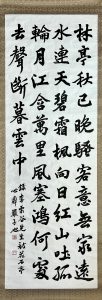 林亭秋已晚騷客意無窮遠
水連天碧霜楓向日紅山吐孤
輪月江含萬里風塞鴻何處
去聲斷暮雲中
錄李栗谷先生詩花石亭